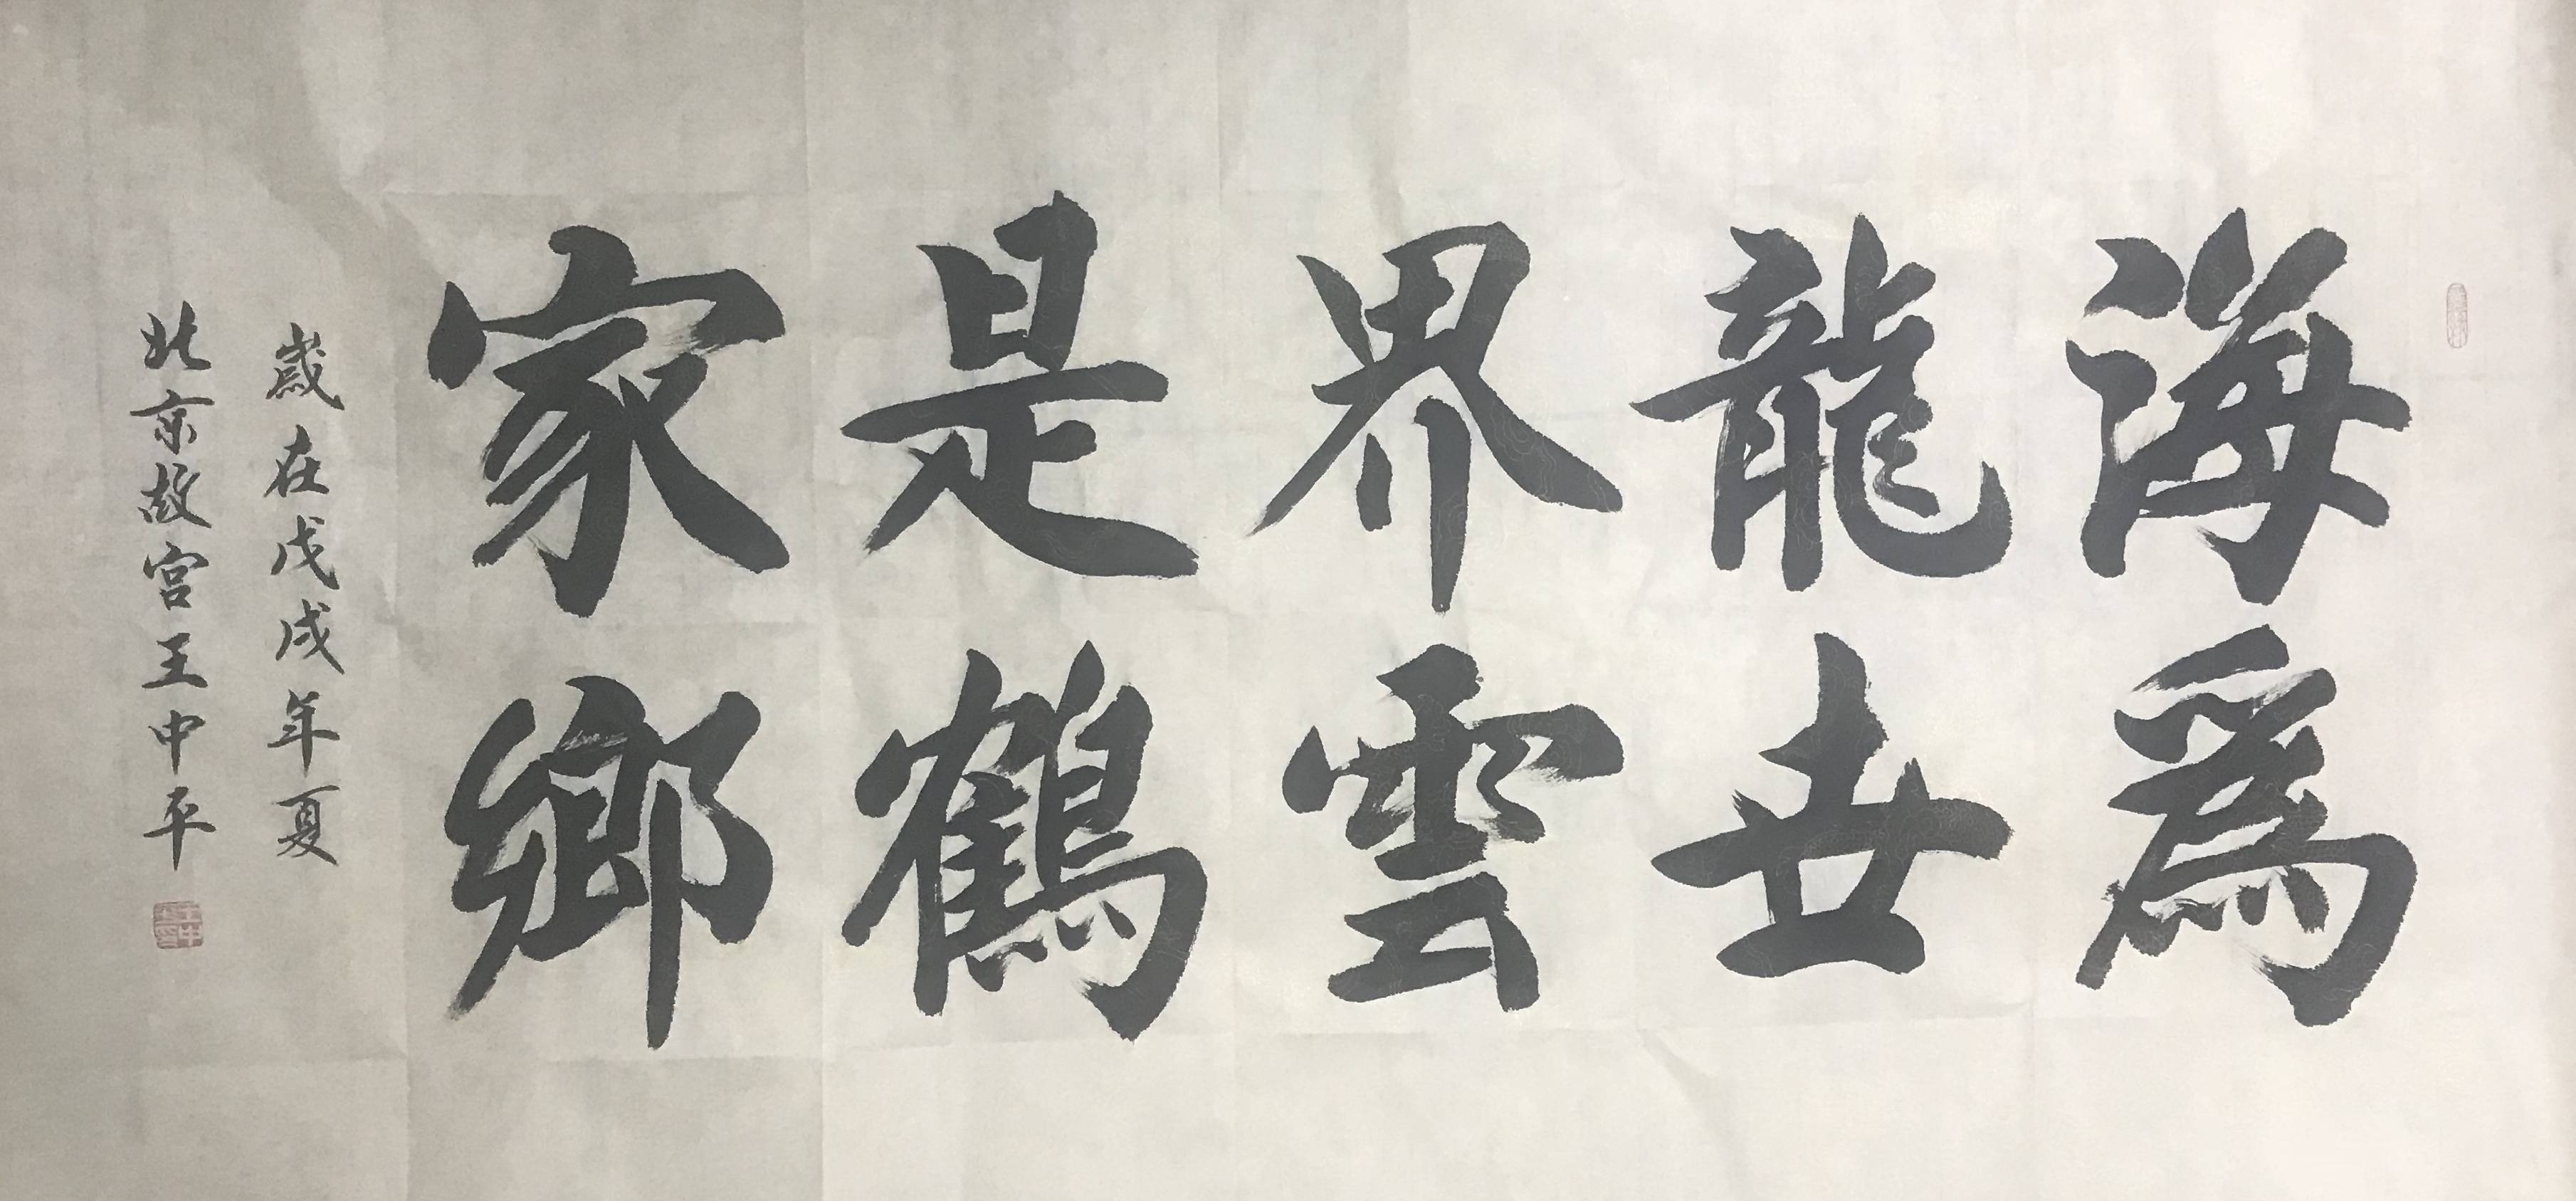 海爲
龍世
界雲
是鶴
家鄉
歲在戊戌年夏
北京故宮王中平